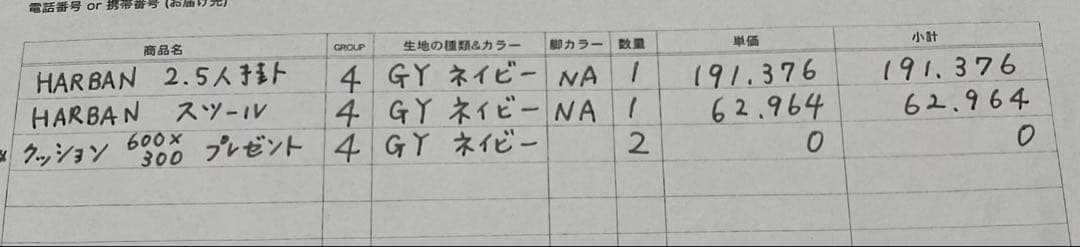 電話番号 or 携帯番号 (お届け先)
商品名 GROUP 生地の種類&カラー 脚カラー 数量 単価 小計
HARBAN 2.5人掛ト 4 GY ネイビー NA 1 191.376 191.376
HARBAN スツール 4 GY ネイビー NA 1 62.964 62.964
クッション 600×300 プレゼント 4 GY ネイビー 2 0 0